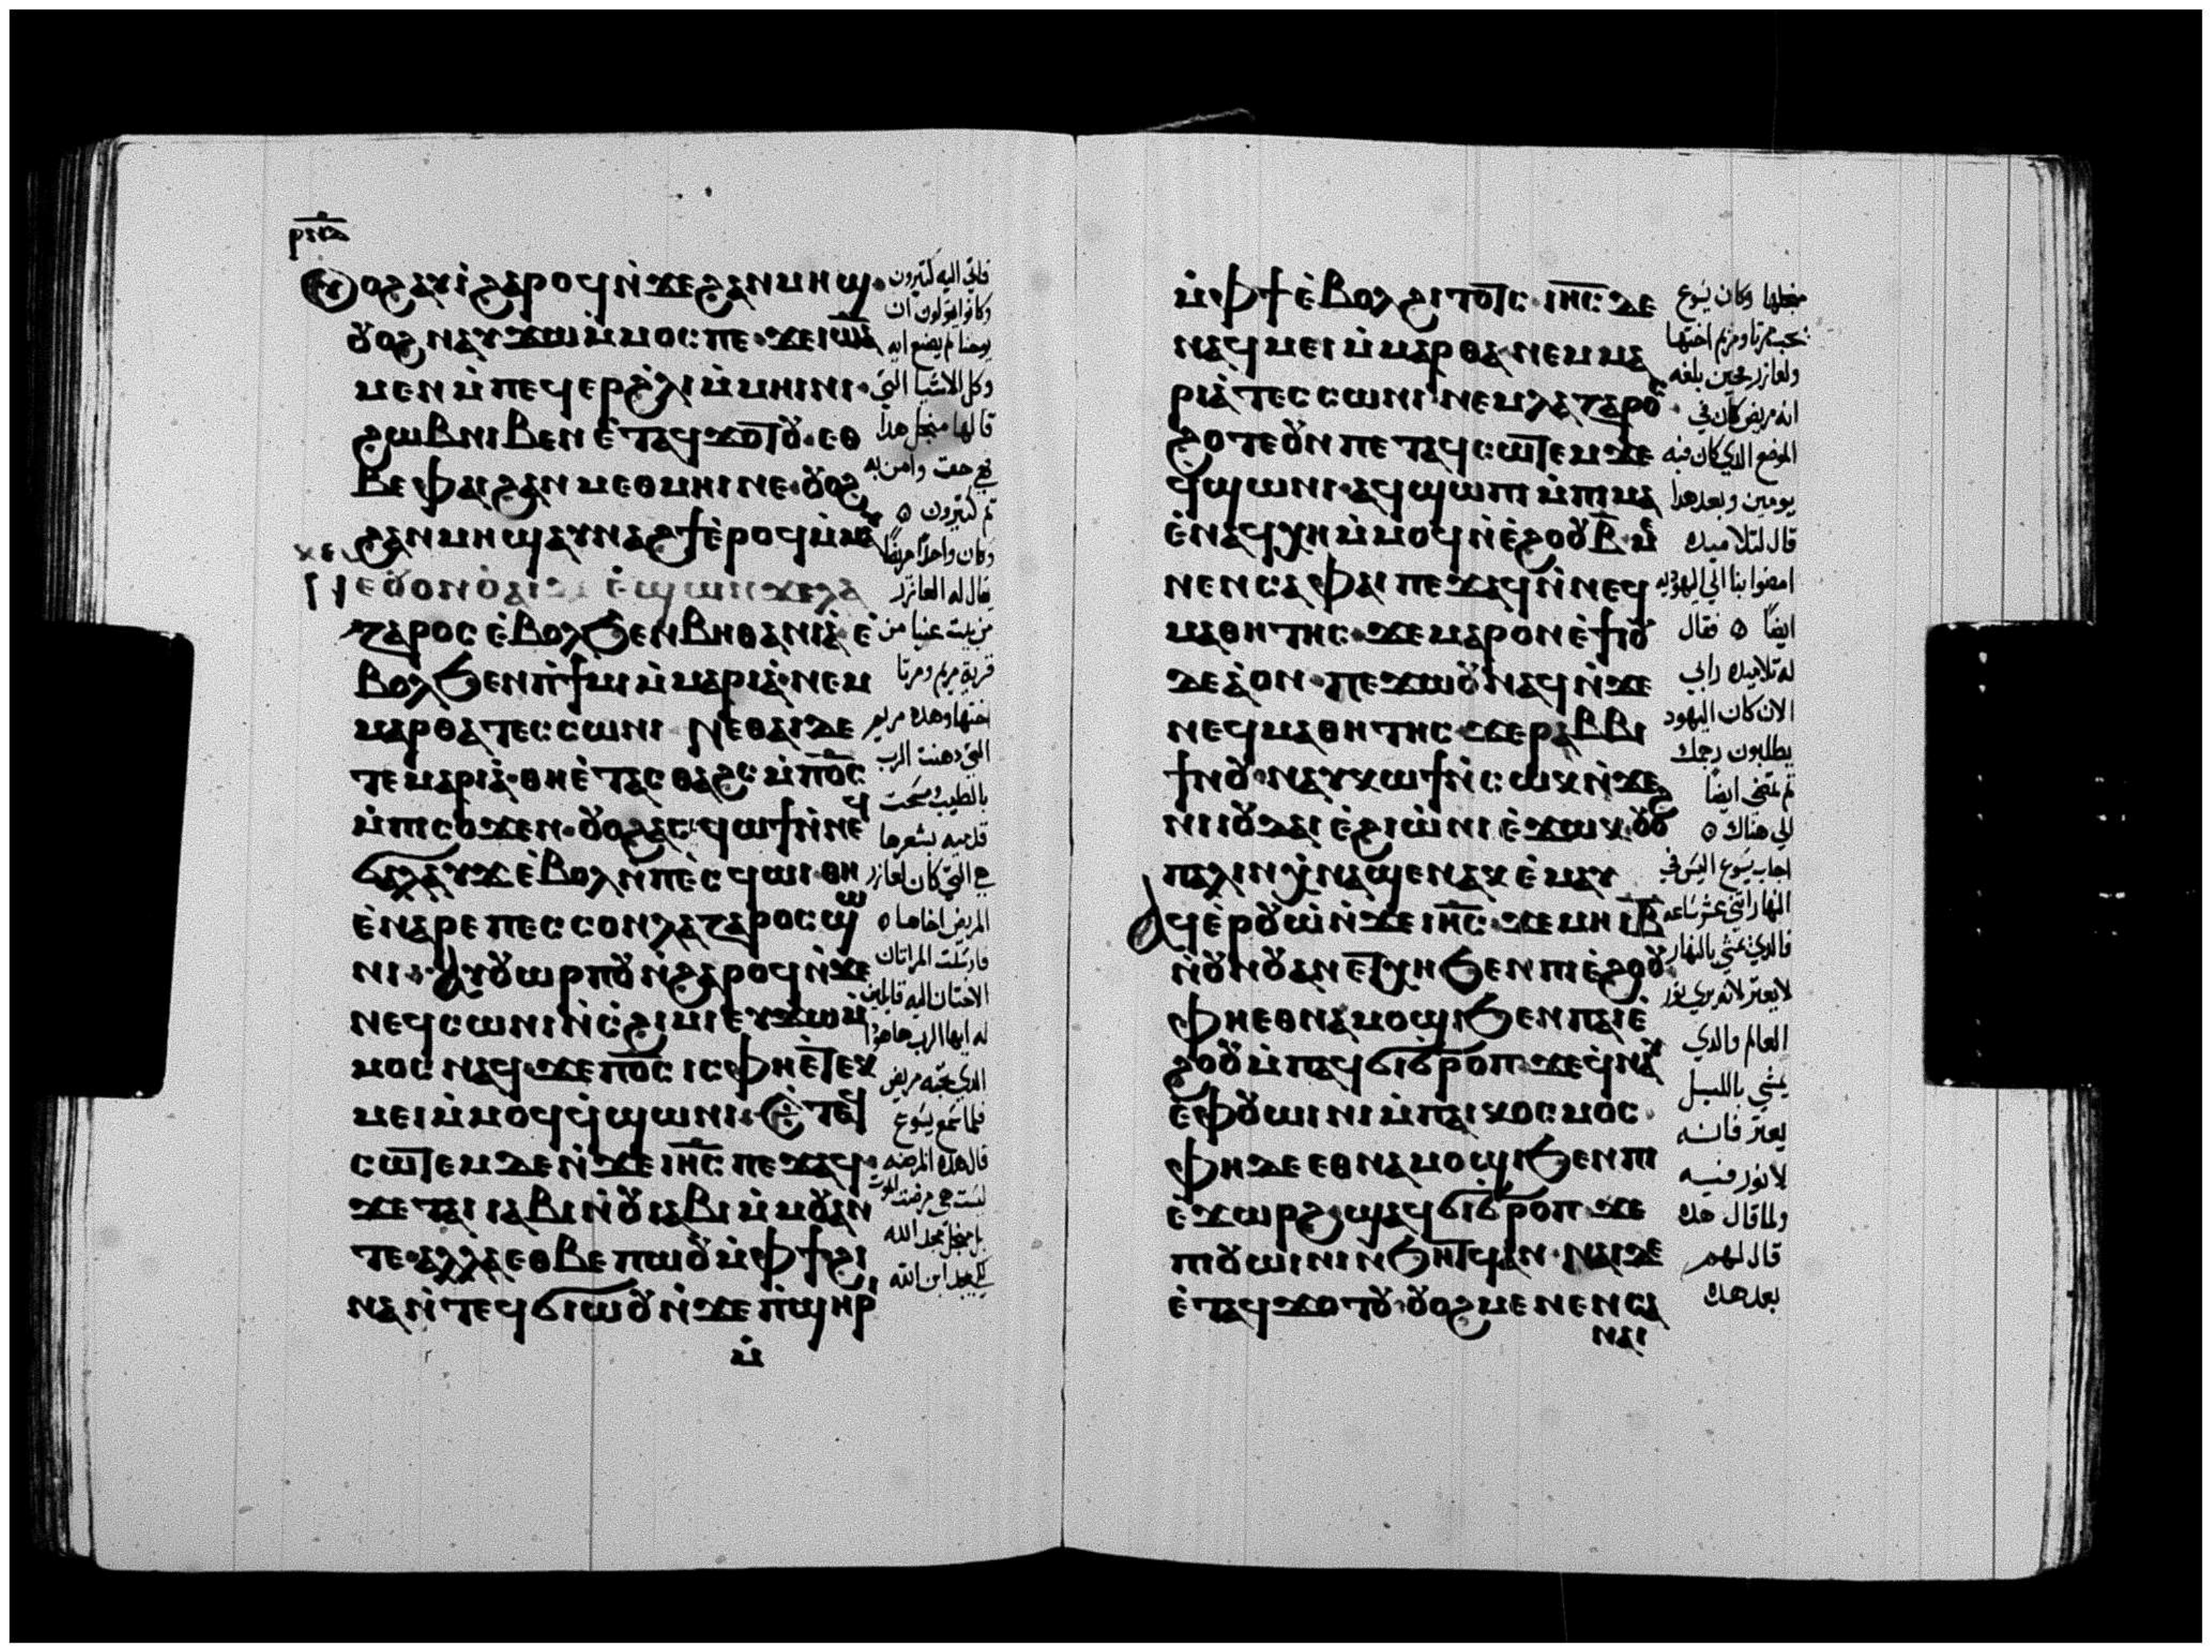 ⲟⲩⲟϩ ⲁⲩⲓ̀ ϩⲁⲣⲟϥ ⲛ̀ϫⲉ ϩⲁⲛⲙⲏϣ·
ⲟⲩⲟϩ ⲛⲁⲩϫⲱ ⲙ̀ⲙⲟⲥ ⲡⲉ· ϫⲉ ⲓⲱⲁ̅
ⲙⲉⲛ ⲙ̀ⲡⲉϥⲉⲣ ϩ̀ⲗⲓ ⲙ̀ⲙⲏⲓⲛⲓ·
ϩⲱⲃ ⲛⲓⲃⲉⲛ ⲉ̀ⲧⲁϥϫⲟⲧⲟⲩ· ⲉⲑ
ⲃⲉ ⲫⲁⲓ ϩⲁⲛⲙⲉⲑⲙⲏⲓ ⲛⲉ· ⲟⲩⲟϩ
ϩⲁⲛⲙⲏϣ ⲁⲩⲛⲁϩϯ ⲉ̀ⲣⲟϥ ⲙ̀ⲙⲁⲩ
ⲍⲁⲣⲟⲥ ⲉ̀ⲃⲟⲗϧⲉⲛ ⲃⲏⲑⲁⲛⲓⲁ̀ ⲉ̀
ⲃⲟⲗϧⲉⲛ ⲡ̀ϯⲙⲓ ⲙ̀ⲙⲁⲣⲓⲁ̀· ⲛⲉⲙ
ⲙⲁⲣⲑⲁ ⲧⲉⲥⲥⲱⲛⲓ ⲛⲉ ⲑⲁⲓ ⲇⲉ
ⲧⲉ ⲙⲁⲣⲓⲁ̀· ⲑⲏ ⲉ̀ⲧⲁⲥⲑⲁϩⲥ ⲙ̀ⲡⲟ̅ⲥ̅
ⲙ̀ⲡⲓⲥⲟϫⲉⲛ· ⲟⲩⲟϩ ⲁⲥϥⲱϯ ⲛ̀ⲛⲉϥ
ϭⲁⲗⲁⲩϫ ⲉ̀ⲃⲟⲗ ⲙ̀ⲡⲉ̀ⲥϥⲱⲓ· ⲑⲏ
ⲉ̀ⲛⲁⲣⲉ ⲡⲉⲥⲥⲟⲛ ⲗⲁⲍⲁⲣⲟⲥ ϣⲱ
ⲛⲓ· ⲁⲩⲟⲩⲱⲣⲡ ⲟⲩⲛ ϩⲁⲣⲟϥ ⲛ̀ϫⲉ
ⲛⲉϥⲥⲱⲛⲓ ⲛ̀ⲥ̀ϩⲓⲙⲓ ⲉⲩϫⲱ ⲙ̀
ⲙⲟⲥ ⲛⲁϥ· ϫⲉ ⲡⲟ̅ⲥ̅ ⲓⲥ ⲫⲏ ⲉ̀ⲧⲉⲕ
ⲙⲉⲓ ⲙ̀ⲙⲟϥ ϥ̀ϣⲱⲛⲓ· ⲉ̀ⲧⲁϥ
ⲥⲱⲧⲉⲙ ⲇⲉ ⲛ̀ϫⲉ ⲓⲏ̅ⲥ̅ ⲡⲉϫⲁϥ·
ϫⲉ ⲧⲁⲓⲓⲁⲃⲓ ⲛ̀ⲟⲩⲓⲁⲃⲓ ⲙ̀ⲙⲟⲩ ⲁⲛ
ⲧⲉ· ⲁⲗⲗⲁ ⲉⲑⲃⲉ ⲡⲱⲟⲩ ⲙ̀ⲫϯ ϩⲓ
ⲛⲁ ⲛ̀ⲧⲉϥϭⲓⲱⲟⲩ ⲛ̀ϫⲉ ⲡ̀ϣⲏⲣⲓ
ⲙ̀
فاتي اليه كثيرون
وكانوا يقولون ان
يوحنا لم يصنع ايه
وكل الاشيا التي
قالها منجل هدا
هي حق وامن به
ثم كثيرون
وكان واحدا مريضا
يقال له العازر
من بيت عنيا من
قرية مريم ومرتا
اختها وهده مريم
التي دهنت الرب
بالطيب ومسحت
قدميه بشعرها
هي التي كان لعازر
المريض اخاها
فارسلت المراتان
الاختان اليه قايلتين
له ايها الرب هاهودا
الدي تحبه مريض
فلما سمع يسوع
قال هده المرضه
ليست هي مرضت الموت
بل منجل مجد الله
لكي يمجد ابن الله
ⲙ̀ⲫϯ ⲉ̀ⲃⲟⲗϩⲓⲧⲟⲧⲥ· ⲓⲏ̅ⲥ̅ ⲇⲉ
ⲛⲁϥⲙⲉⲓ ⲙ̀ⲙⲁⲣⲑⲁ ⲛⲉⲙ ⲙⲁ
ⲣⲓⲁ̀ ⲧⲉⲥⲥⲱⲛⲓ ⲛⲉⲙ ⲗⲁⲍⲁⲣⲟⲥ·
ϩⲟⲧⲉ ⲟⲩⲛ ⲉⲧⲁϥⲥⲱⲧⲉⲙ ϫⲉ
ϥ̀ϣⲱⲛⲓ· ⲁϥϣⲱⲡⲓ ⲙ̀ⲡⲓⲙⲁ
ⲉ̀ⲛⲁϥⲭⲏ ⲙ̀ⲙⲟϥ ⲛ̀ⲉ̀ϩⲟⲟⲩ ⲃ̅· ⲙ̀
ⲛⲉⲛⲥⲁ ⲫⲁⲓ ⲡⲉϫⲁϥ ⲛ̀ⲛⲉϥ
ⲙⲁⲑⲏⲧⲏⲥ· ϫⲉ ⲙⲁⲣⲟⲛ ⲉ̀ϯⲓⲟⲩ
ⲇⲉⲁ̀ ⲟⲛ· ⲡⲉϫⲱⲟⲩ ⲛⲁϥ ⲛ̀ϫⲉ
ⲛⲉϥⲙⲁⲑⲏⲧⲏⲥ· ϫⲉ ⲣⲁⲃⲃⲓ
ϯⲛⲟⲩ· ⲛⲁⲩⲕⲱϯ ⲛ̀ⲥⲱⲕ ⲛ̀ϫⲉ
ⲛⲓⲓⲟⲩⲇⲁⲓ ⲉ̀ϩⲓⲱ̀ⲛⲓ ⲉ̀ϫⲱⲕ· ⲟⲩⲟϩ
ⲡⲁⲗⲓⲛ ⲭ̀ⲛⲁϣⲉⲛⲁⲕ ⲉ̀ⲙⲁⲩ
ⲁϥⲉ̀ⲣⲟⲩⲱ̀ ⲛ̀ϫⲉ ⲓⲏ̅ⲥ̅· ϫⲉ ⲙⲏ ⲓ̅ⲃ̅
ⲛ̀ⲟⲩⲛⲟⲩ ⲁⲛ ⲉⲧⲭⲏ ϧⲉⲛ ⲡⲓⲉ̀ϩⲟⲟⲩ·
ⲫⲏ ⲉⲑⲛⲁⲙⲟϣⲓ ϧⲉⲛ ⲡⲓⲉ̀
ϩⲟⲟⲩ ⲙ̀ⲡⲁϥϭⲓϭ̀ⲣⲟⲡ· ϫⲉ ϥ̀ⲛⲁⲩ
ⲉ̀ⲫⲟⲩⲱⲓⲛⲓ ⲙ̀ⲡⲁⲓⲕⲟⲥⲙⲟⲥ·
ⲫⲏ ⲇⲉ ⲉⲑⲛⲁⲙⲟϣⲓ ϧⲉⲛ ⲡⲓ
ⲉ̀ϫⲱⲣϩ· ϣⲁϥϭⲓϭ̀ⲣⲟⲡ· ϫⲉ
ⲡⲓⲟⲩⲱⲓⲛⲓ ⲛ̀ϧⲏⲧϥ ⲁⲛ· ⲛⲁⲓ ⲇⲉ
ⲉ̀ⲧⲁϥϫⲟⲧⲟⲩ· ⲟⲩⲟϩ ⲙⲉⲛⲉⲛⲥⲁ
ⲛⲁⲓ
وكان يسوع
يحب مرتا ومريم اختها
ولعازر فحين بلغه
انه مريض كان في
الموضع الدي كان فيه
يومين وبعد هدا
قال لتلاميده
امضوا بنا الي اليهوديه
ايضا فقال
له تلاميده رابي
الان كان اليهود
يطلبون رجمك
ثم تمضي ايضا
الي هناك
اجاب يسوع اليس في
النهار اثني عشر ساعه
فالدي يمشي بالنهار
لا يعثر لانه يري نور
العالم والدي
يمشي بالليل
يعثر فانه
لا نور فيه
ولما قال هده
قال لهم
بعد هده